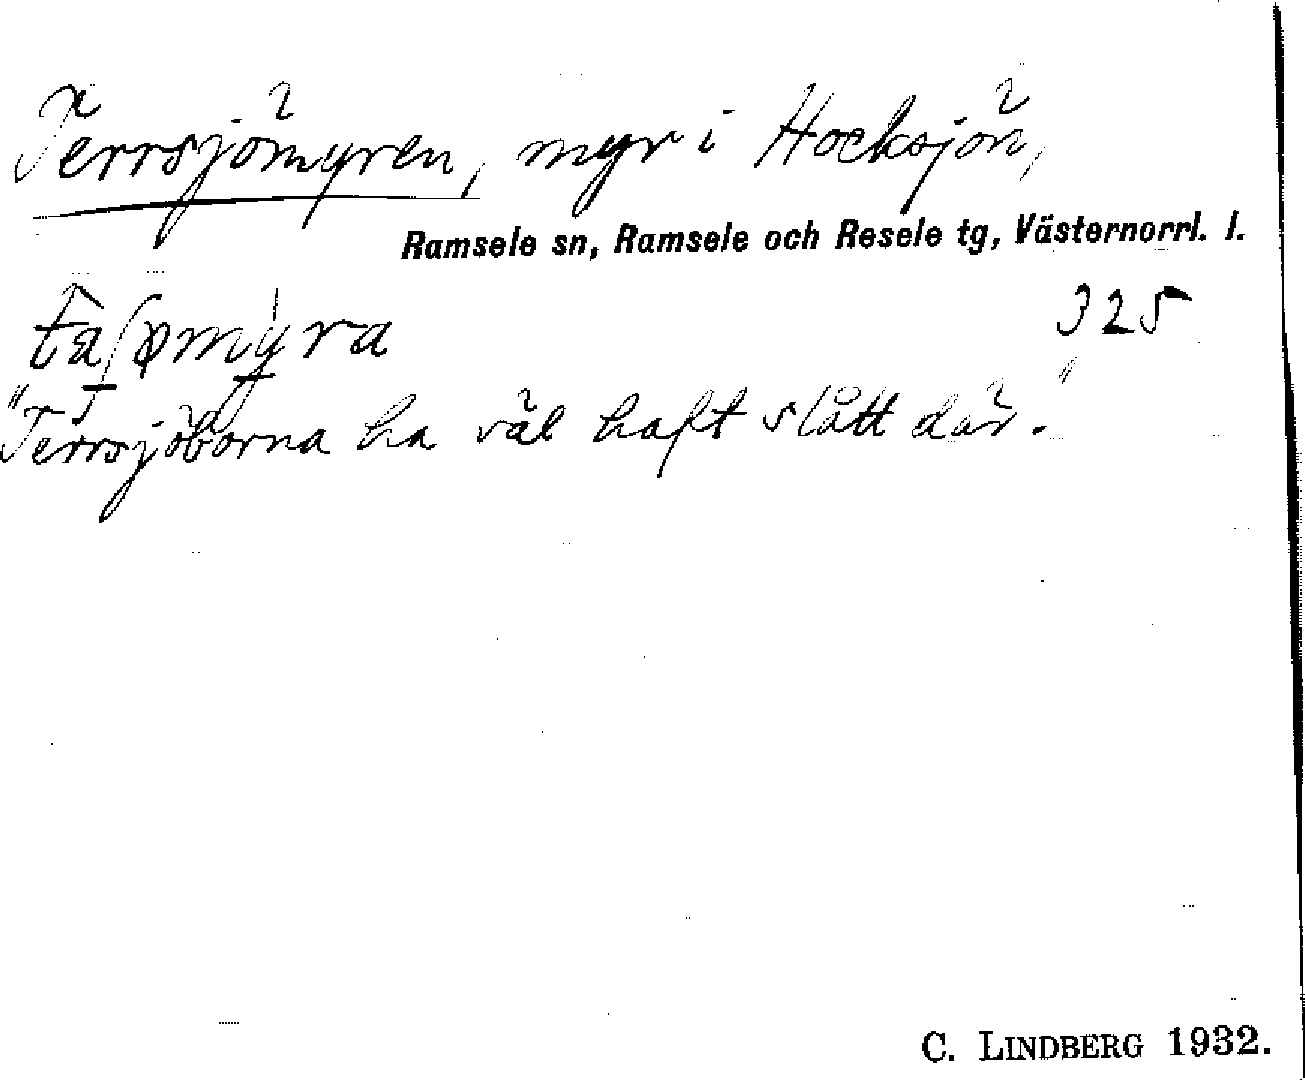 Terrsjömyren, myr i Hocksjön,
Ramsele sn, Ramsele och Resele tg, Västernorrl. l.
325
"Terrsjöborna ha väl haft slått där."
C. LINDBERG 1932.